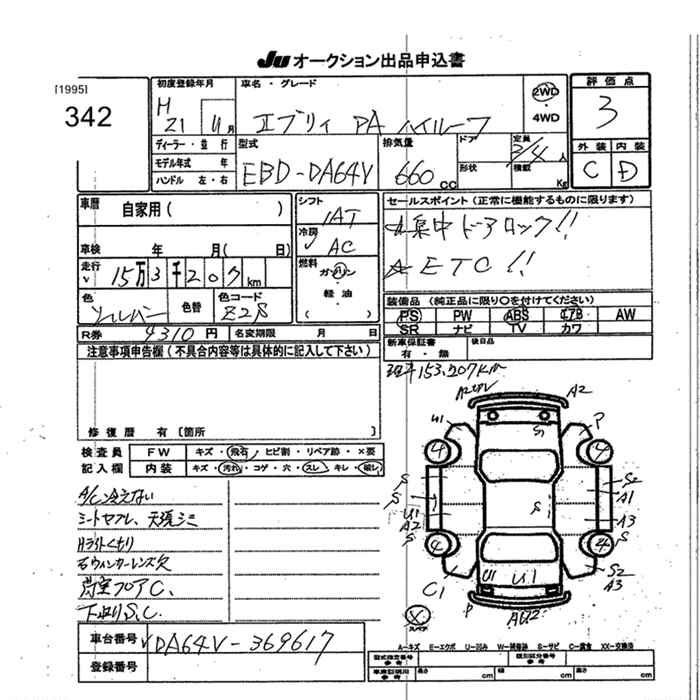 JU オークション出品申込書
[1995]
342
初度登録年月
H 21 年 4 月
車名・グレード
エブリィ PA ハイルーフ
2WD
・
4WD
評価点
3
外装 内装
C D
ディーラー・並行
モデル年式 年
ハンドル 左・右
型式
EBD-DA64V
排気量
660 cc
ドア
形状
定員
2/4 人
積載
Kg
車歴
自家用 ( )
車検 年 月 ( 日)
走行
15万3千207km
色
シルバー
色替
色コード
Z2S
シフト
IAT
冷房
AC
燃料
ガソリン
・
軽油
( )
セールスポイント (正常に機能するものに限ります)
☆集中ドアロック!!
☆ETC!!
装備品 (純正品に限り○を付けてください)
PS PW ABS エアB AW
SR ナビ TV カワ
R券 9310円 名変期限 月 日
新車保証書
有・無
後日品
注意事項申告欄 (不具合内容等は具体的に記入して下さい)
修復歴 有 [箇所
153,207km
検査員
記入欄
FW キズ・飛石・ヒビ割・リペア跡・×要
内装 キズ・汚れ・コゲ・穴・スレ・キレ・破レ
A/C冷えない
シートヤブレ、天張シミ
Hライトくもり
右ウィンカーレンズ欠
荷室フロアC、
下廻りS.C.
A2 A2
U1 P
4 S 4
S S2
S A1
U1 S
A2 A3
S S
4 4
C1 U1 U1 S2
A3
P AU2
スペア
車台番号 DA64V-369617
登録番号
A=キズ E=エクボ U=凹み W=補修跡 S=サビ C=腐食 XX=交換済
型式指定番号
参考
類別区分番号
参考
車庫証明用
参考
長さ cm 幅 cm 高さ cm